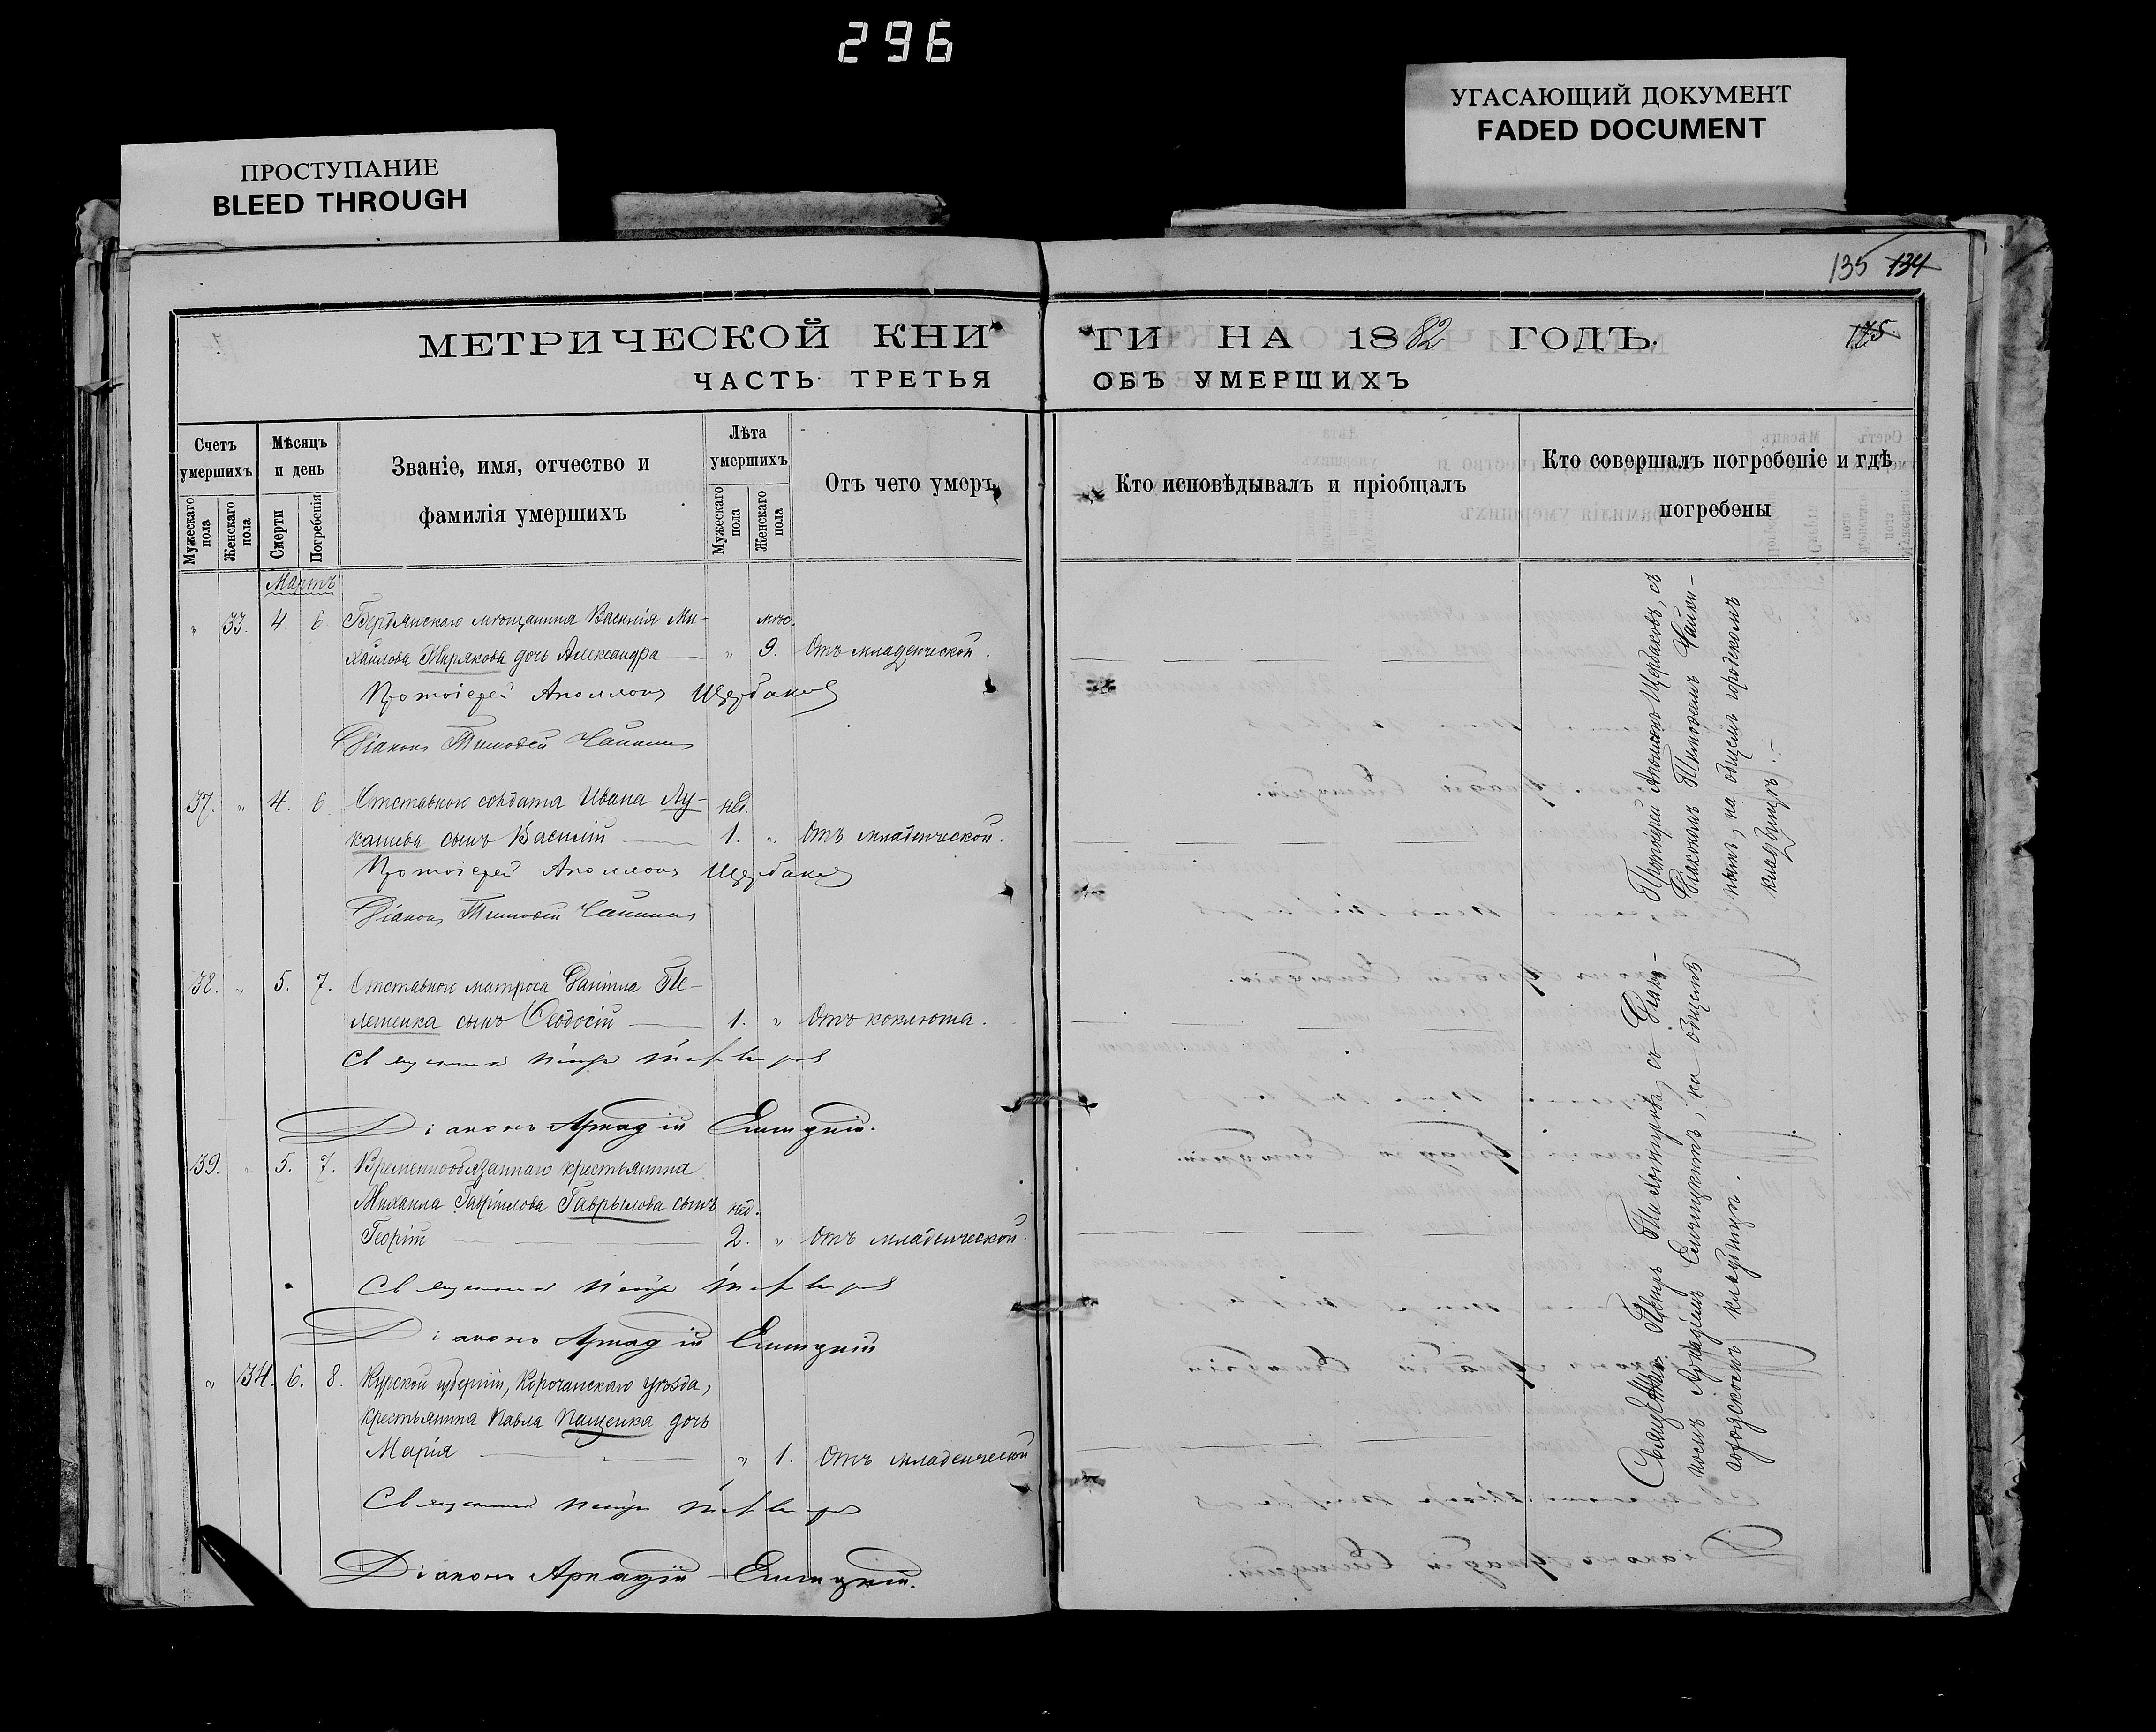 296
УГАСАЮЩИЙ ДОКУМЕНТ
FADED DOCUMENT
ПРОСТУПАНИЕ
BLEED THROUGH
135 134
МЕТРИЧЕСКОЙ КНИ
ГИ НА 1882 ГОДЪ.
175
ЧАСТЬ ТРЕТЬЯ
ОБЪ УМЕРШИХЪ
Счетъ умершихъ
Мужескаго пола
Женскаго пола
Мѣсяцъ и день
Смерти
Погребенія
Званіе, имя, отчество и
фамилія умершихъ
Лѣта умершихъ
Мужескаго пола
Женскаго пола
Отъ чего умеръ
Кто исповѣдывалъ и пріобщалъ
Кто совершалъ погребеніе и гдѣ
погребены
Мартъ
" 33. 4. 6. Бердянскаго мѣщанина Василія Ми- мѣс.
хайлова дочь Александра — " 9. Отъ младенческой.
Протоіерей Аполлонъ Щербаковъ
Діаконъ Тимофей
37. " 4. 6 Отставнаго солдата Ивана Лу- нед.
кашева сынъ Василій — 1. " Отъ младенческой.
Протоіерей Аполлонъ Щербаковъ
Діаконъ Тимофей
38. " 5. 7. Отставнаго матроса Даніила Те-
лешенка сынъ Ѳеодосій — 1. " Отъ коклюша.
Священникъ Петръ
Діаконъ Аркадій Синицкій.
39. " 5. 7. Временнообязаннаго крестьянина
Михаила Гавріилова Гаврылова сынъ нед.
Георгій — 2. " Отъ младенческой.
Священникъ Петръ
Діаконъ Аркадій Синицкій
" 34. 6. 8. Курской губерніи, Корочанскаго уѣзда,
крестьянина Павла Пащенка дочь
Марія — " 1. Отъ младенческой
Священникъ Петръ
Діаконъ Аркадій Синицкій.
Протоіерей Аполлонъ Щербаковъ, съ
Діакономъ Тимофеемъ
на общемъ городскомъ
кладбищѣ.
Священникъ Петръ съ Діако-
номъ Аркадіемъ Синицкимъ, на общемъ
городскомъ кладбищѣ.